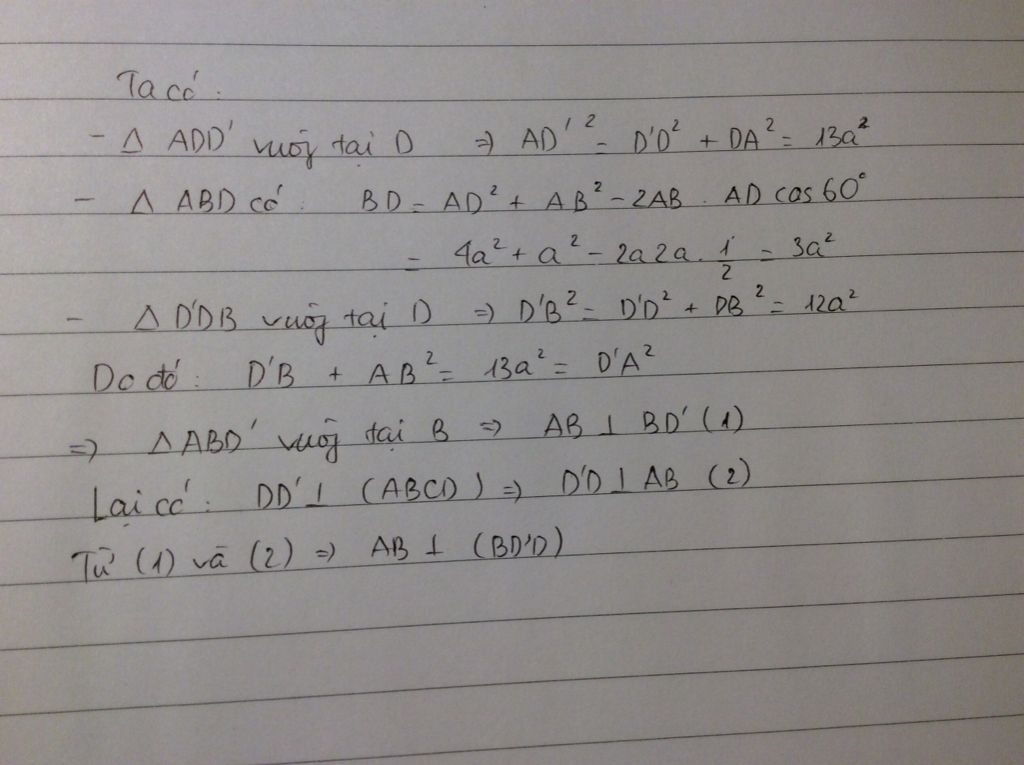 Ta có :
- Δ ADD' vuông tại D ⇒ AD'² = D'D² + DA² = 13a²
- Δ ABD có : BD = AD² + AB² - 2AB . AD cos 60°
= 4a² + a² - 2a2a . 1/2 = 3a²
- Δ D'DB vuông tại D ⇒ D'B² = D'D² + DB² = 12a²
Do đó : D'B + AB² = 13a² = D'A²
⇒ Δ ABD' vuông tại B ⇒ AB ⊥ BD' (1)
Lại có : DD' ⊥ (ABCD) ⇒ D'D ⊥ AB (2)
Từ (1) và (2) ⇒ AB ⊥ (BD'D)